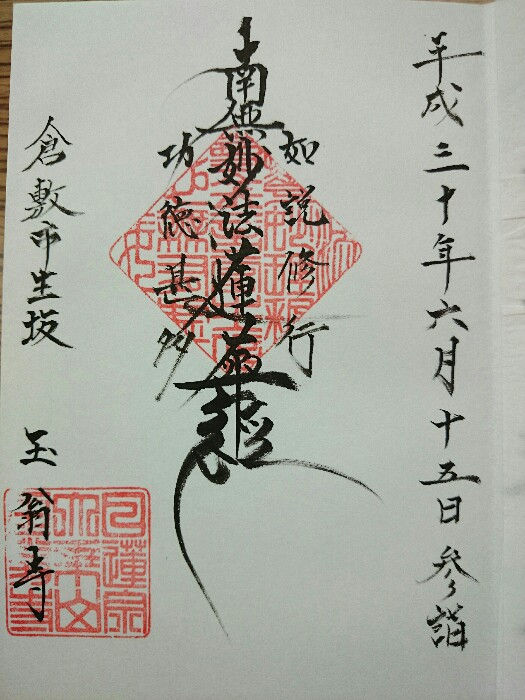 平成三十年六月十五日参詣
如説修行
南無妙法蓮華経
功徳甚多
倉敷市生坂
玉翁寺
日蓮宗